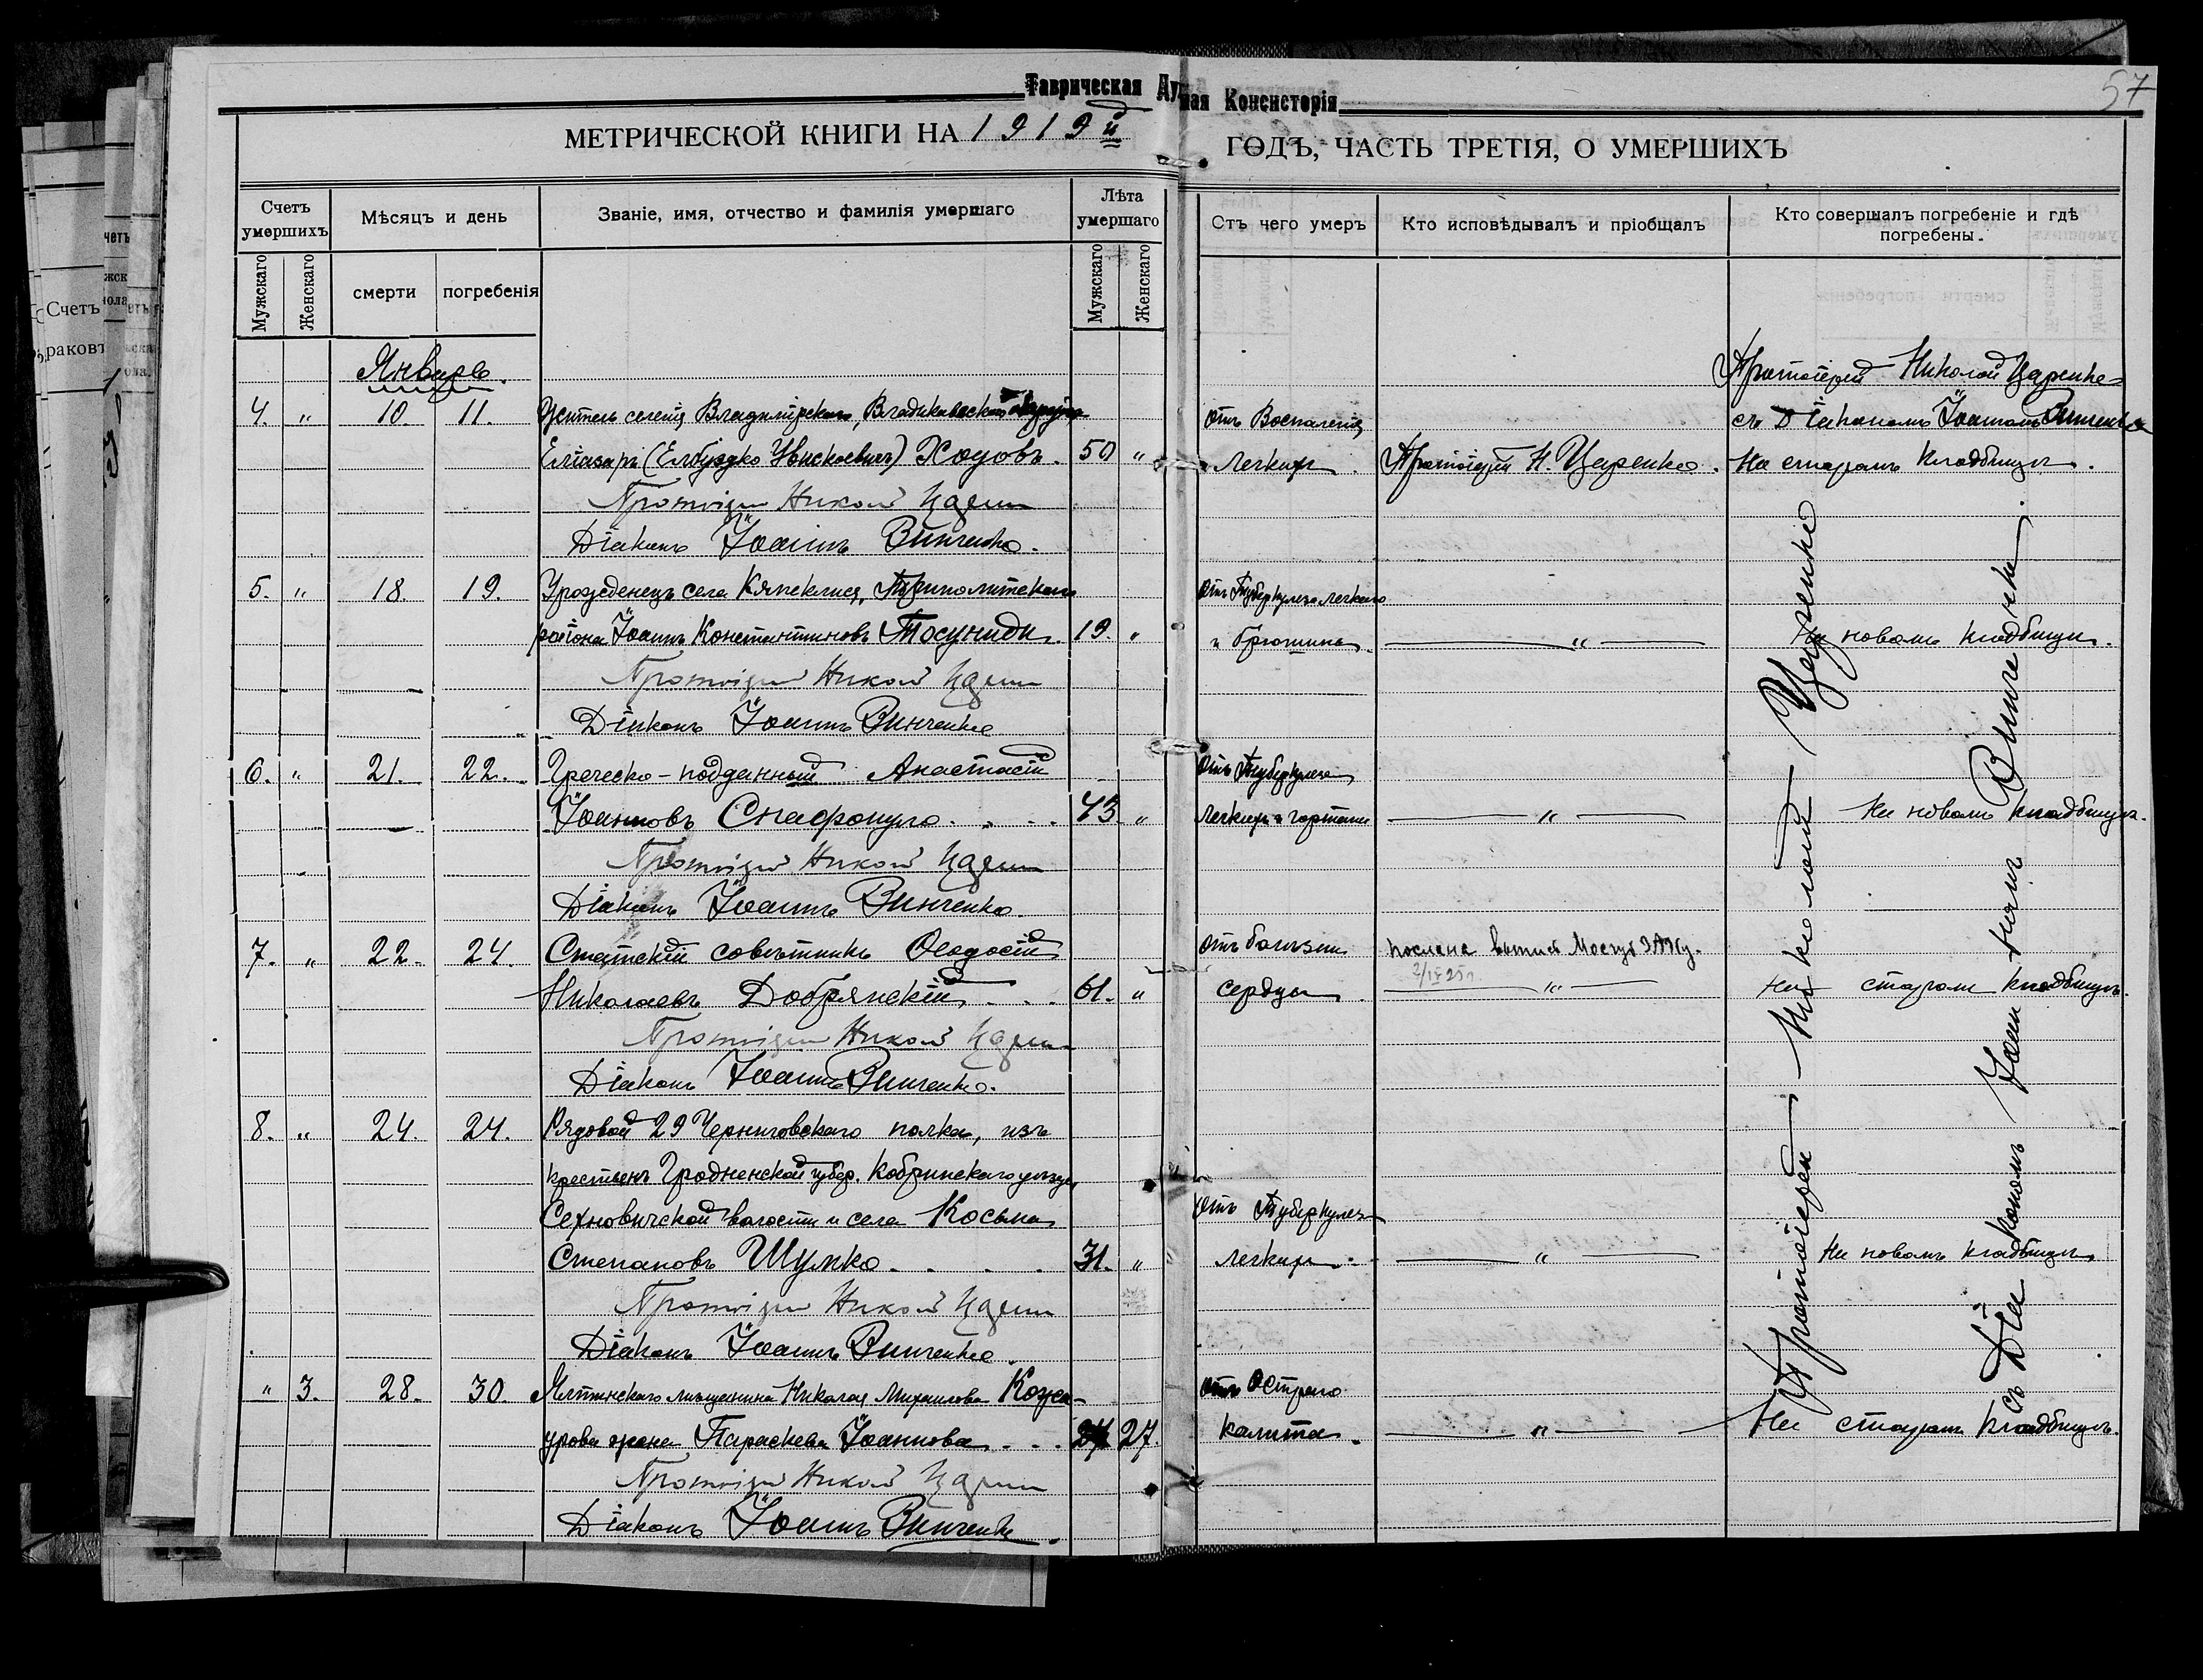 57
Таврическая Ду
ная Консисторія
МЕТРИЧЕСКОЙ КНИГИ НА 1919й
ГОДЪ, ЧАСТЬ ТРЕТІЯ, О УМЕРШИХЪ
Счетъ умершихъ
Мѣсяцъ и день
Званіе, имя, отчество и фамилія умершаго
Лѣта умершаго
Отъ чего умеръ
Кто исповѣдывалъ и пріобщалъ
Кто совершалъ погребеніе и гдѣ погребены.
Мужскаго
Женскаго
смерти
погребенія
Мужскаго
Женскаго
Январь.
Протоіерей Николай Царенко
4. " 10. 11. Житель селенія Владимірскаго, Владикавказскаго округа отъ Воспаленія съ Діакономъ Іоанномъ Винченко
Еліазаръ (Елбуздко) Ходовъ. 50 " легкихъ. Протоіерей Н. Царенко. На старомъ кладбищѣ.
Протоіерей Николай Царенко
Діаконъ Іоаннъ Винченко.
5. " 18. 19. Уроженецъ села Триполитскаго отъ Туберкулеза легкихъ
района Іоаннъ Константиновъ Тосуниди. 19. " и брюшины. " На новомъ кладбищѣ.
Протоіерей Николай Царенко
Діаконъ Іоаннъ Винченко
6. " 21. 22. Греческо-подданный Анастасій отъ Туберкулеза
Іоанновъ Спафопуло. 43 " легкихъ и гортани " На новомъ кладбищѣ.
Протоіерей Николай Царенко
Діаконъ Іоаннъ Винченко.
7. " 22. 24. Статскій совѣтникъ Ѳеодосій отъ болѣзни послана выпись ЗАГСу.
2/IV 25 г.
Николаевъ Добрянскій 61. " сердца. " На старомъ кладбищѣ.
Протоіерей Николай Царенко
Діаконъ Іоаннъ Винченко.
8. " 24. 24. Рядовой 29 Черниговскаго полка, изъ
крестьянъ Гродненской губер. Кобринскаго уѣзда,
Сехновичской волости и села Косьма отъ Туберкулеза
Степановъ Шумко. 31. " легкихъ. " На новомъ кладбищѣ.
Протоіерей Николай Царенко
Діаконъ Іоаннъ Винченко.
" 3. 28. 30. Ялтинскаго мѣщанина Николая Михаилова Кожа- отъ Остраго
урова жена Параскева Іоаннова 27. колита. " На старомъ кладбищѣ.
Протоіерей Николай Царенко
Діаконъ Іоаннъ Винченко.
Протоіерей Николай Царенко
съ Діакономъ Іоанномъ Винченко.
Счетъ
раковъ